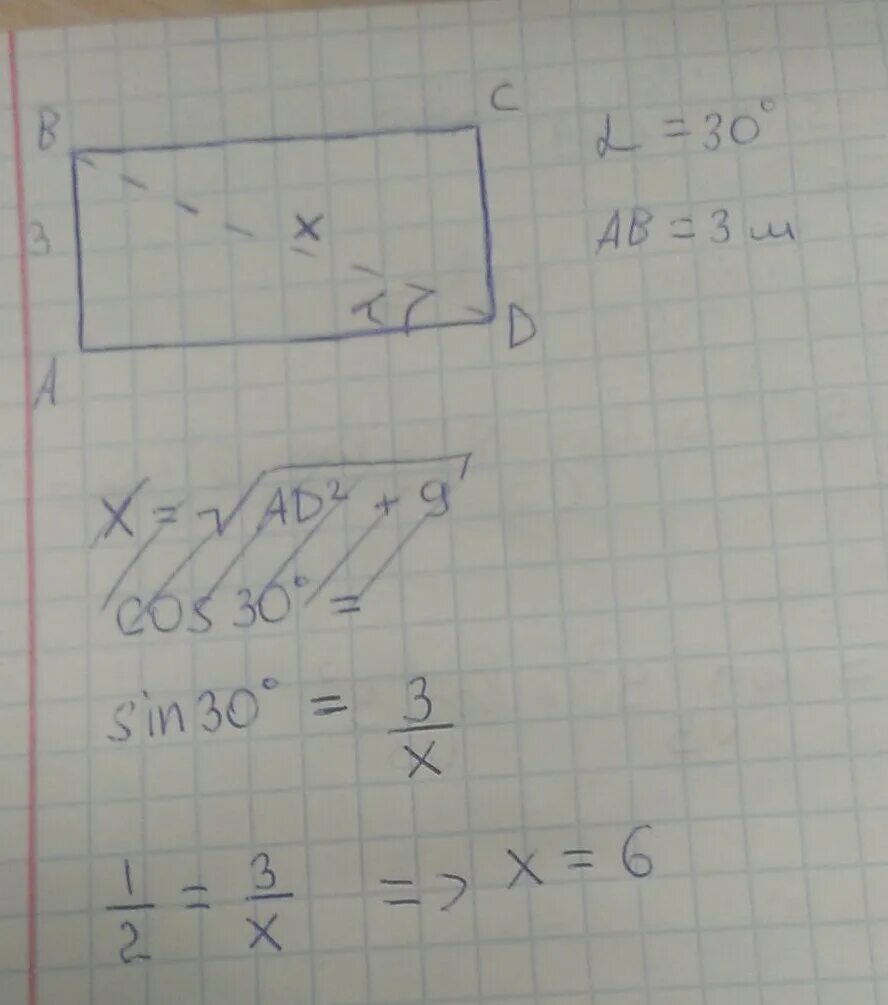 B
C
3
x
α
A
D
α = 30°
AB = 3 м
x = √AD² + 9
cos 30° =
sin 30° = 3/x
1/2 = 3/x => x = 6